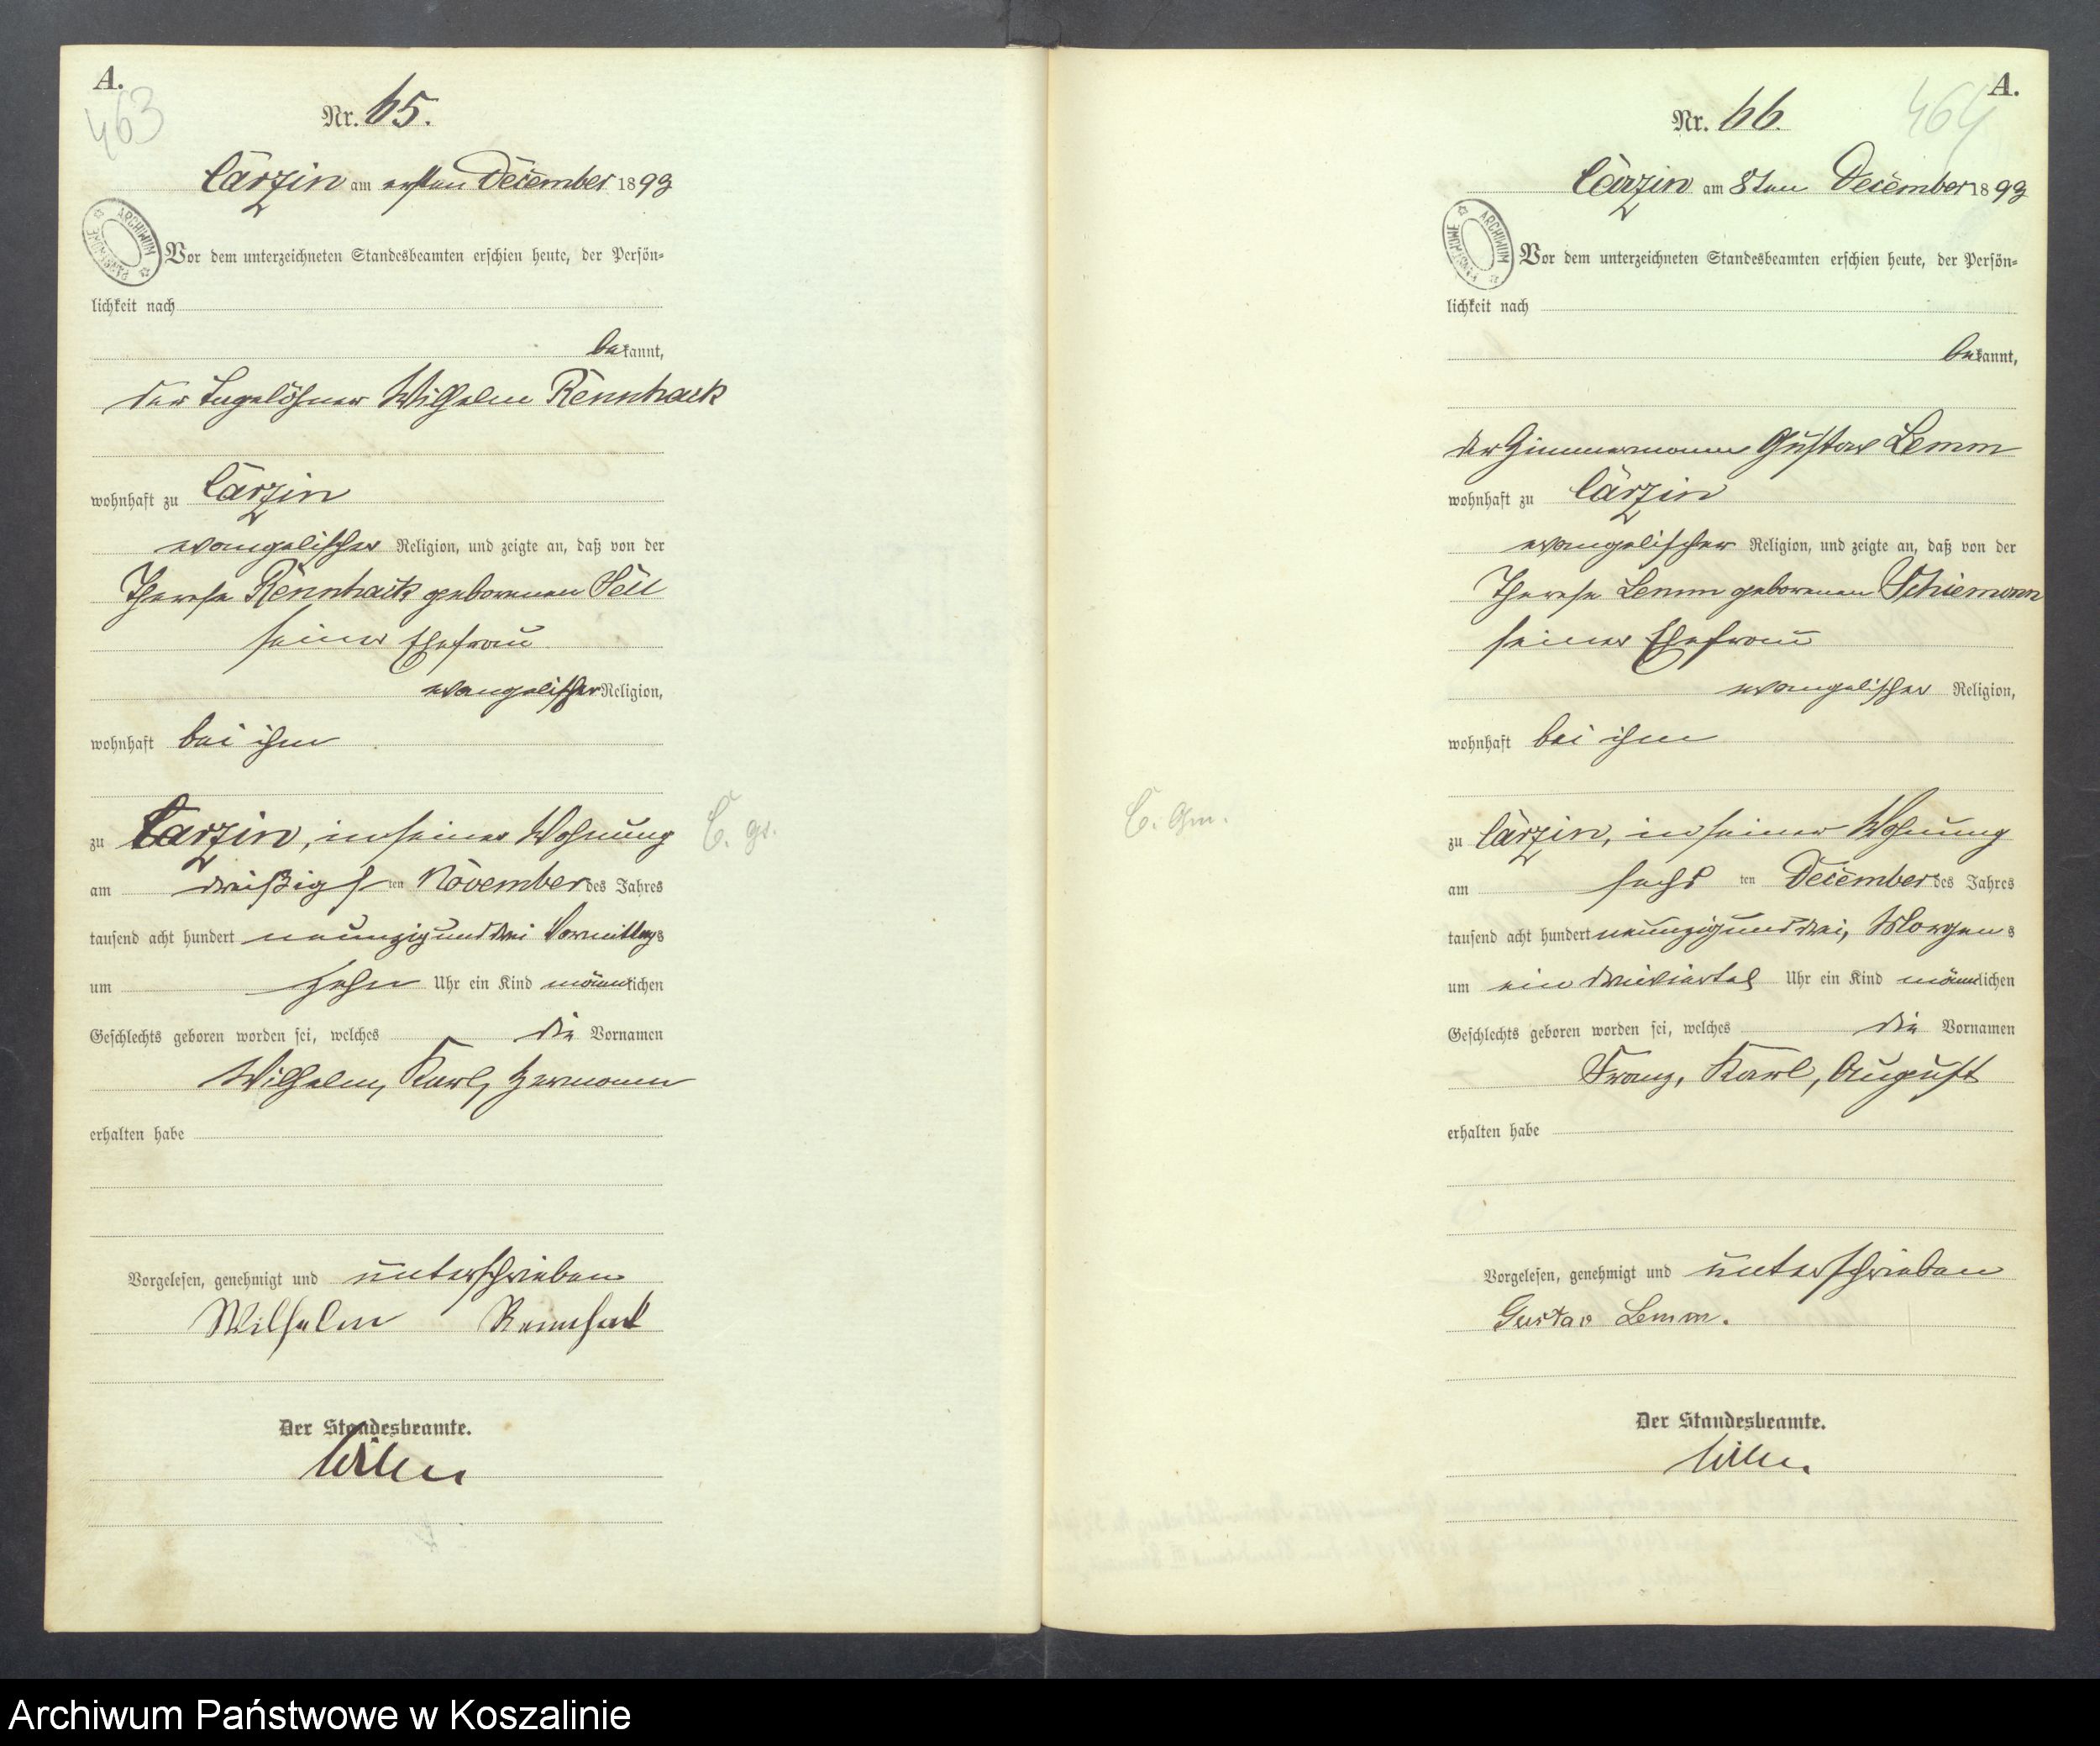 A.
463
Nr. 65.
Carzin am ersten December 1893
ARCHIWUM PAŃSTWOWE
Vor dem unterzeichneten Standesbeamten erschien heute, der Persön-
lichkeit nach
bekannt,
der Tagelöhner Wilhelm Rennhack
wohnhaft zu Carzin
evangelischer Religion, und zeigte an, daß von der
Therese Rennhack geborenen Sell
seiner Ehefrau
evangelischer Religion,
wohnhaft bei ihm
zu Carzin, in seiner Wohnung
am dreißigsten November des Jahres
tausend acht hundert neunzig und drei Vormittags
um zehn Uhr ein Kind männlichen
Geschlechts geboren worden sei, welches die Vornamen
Wilhelm, Karl, Hermann
erhalten habe
Vorgelesen, genehmigt und unterschrieben
Wilhelm Rennhack
Der Standesbeamte.
A.
464
Nr. 66.
Carzin am 8ten December 1893
ARCHIWUM PAŃSTWOWE
Vor dem unterzeichneten Standesbeamten erschien heute, der Persön-
lichkeit nach
bekannt,
der Zimmermann Gustav Lemm
wohnhaft zu Carzin
evangelischer Religion, und zeigte an, daß von der
Therese Lemm geborenen Schiemann
seiner Ehefrau
evangelischer Religion,
wohnhaft bei ihm
zu Carzin, in seiner Wohnung
am sechsten December des Jahres
tausend acht hundert neunzig und drei, Morgens
um ein dreiviertel Uhr ein Kind männlichen
Geschlechts geboren worden sei, welches die Vornamen
Franz, Karl, August
erhalten habe
Vorgelesen, genehmigt und unterschrieben
Gustav Lemm.
Der Standesbeamte.
Archiwum Państwowe w Koszalinie